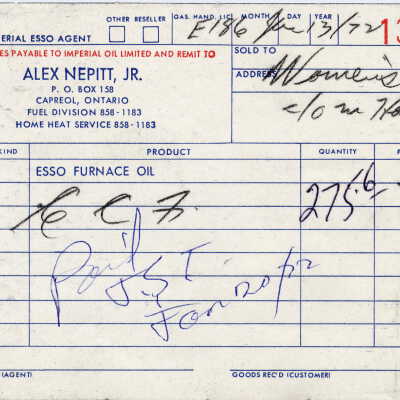 OTHER RESELLER
GAS. HAND. LIC. MONTH DAY YEAR
E186 Jan 13/72
13
ERIAL ESSO AGENT
ES PAYABLE TO IMPERIAL OIL LIMITED AND REMIT TO
SOLD TO
ALEX NEPITT, JR.
ADDRESS
Women's
P. O. BOX 158
CAPREOL, ONTARIO
c/o
FUEL DIVISION 858-1183
HOME HEAT SERVICE 858-1183
KIND PRODUCT QUANTITY
ESSO FURNACE OIL
275.6
Paid
Jan 20/72
(AGENT) GOODS REC'D (CUSTOMER)